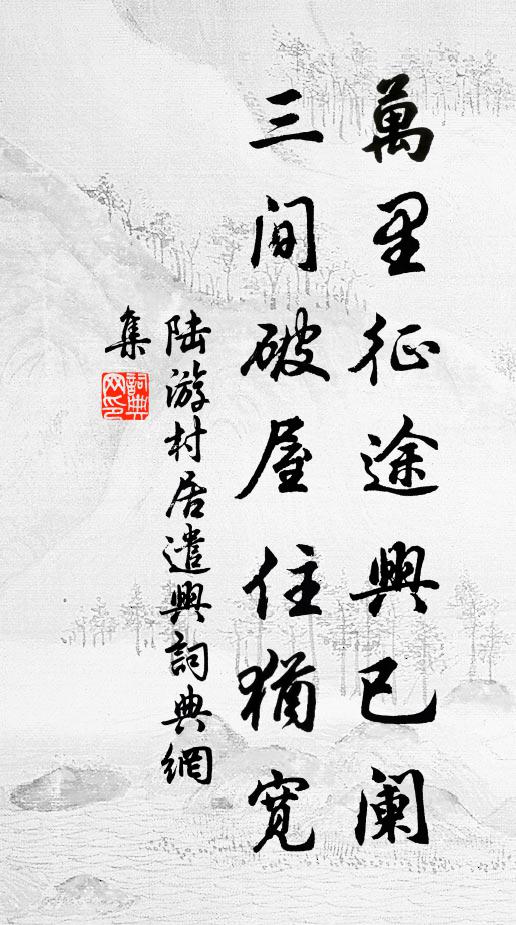 萬里征途興已阑
三间破屋住猶寬
陆游村居遣興詞典網
集
詞典网印